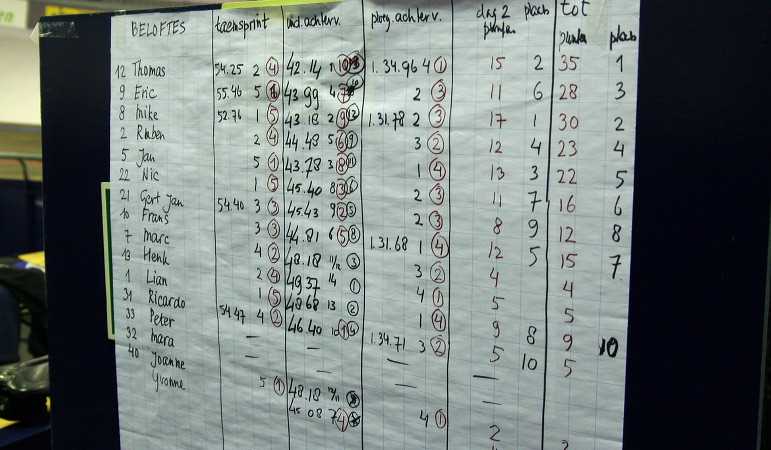 BELOFTES teamsprint ind.achterv. ploeg.achterv. dag 2 punten plaats tot punten plaats
12 Thomas 54.25 2 4 42.14 1 10 1.34.96 4 1 15 2 35 1
9 Eric 55.46 5 1 43.99 4 7 2 3 11 6 28 3
8 Mike 52.76 1 5 43.18 2 9 1.31.78 2 3 17 1 30 2
2 Ruben 2 4 44.48 5 6 3 2 12 4 23 4
5 Jan 5 1 43.78 3 8 1 4 13 3 22 5
22 Nic 1 5 45.40 8 3 2 3 11 7 16 6
21 Gert Jan 54.40 3 3 45.43 9 2 2 3 8 9 12 8
10 Frans 3 3 44.81 6 5 1.31.68 1 4 12 5 15 7
7 Marc 4 2 48.18 11/12 3 3 2 4 4
13 Henk 2 4 49.37 14 1 4 1 5 5
1 Lian 1 5 48.68 13 2 1 4 9 8 9 10
31 Ricardo 54.47 4 2 46.40 10 1 1.34.71 3 2 5 10 5
33 Peter — — — —
32 Mara — — — —
40 Joanne 5 1 48.18
Yvonne 45.08 7 4 4 1 2